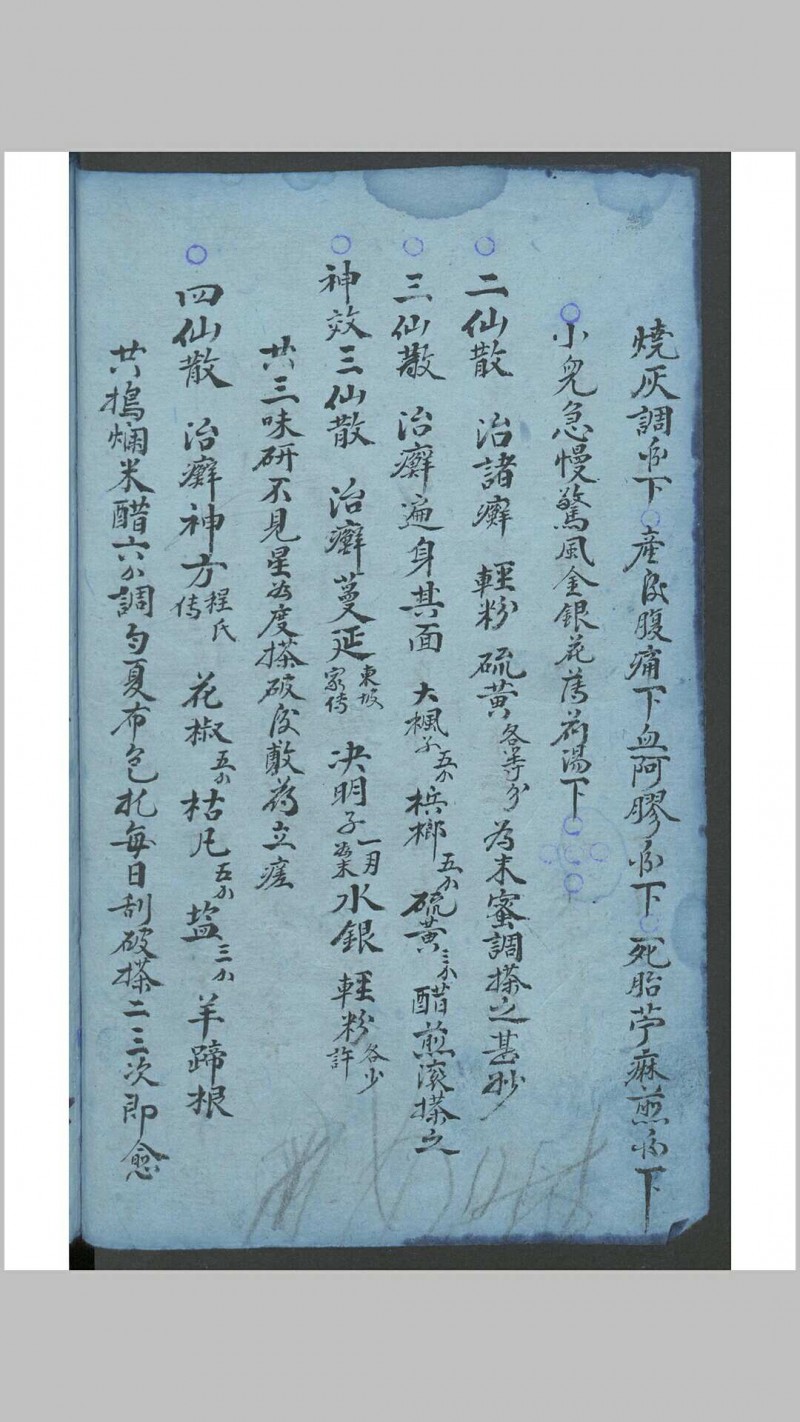 燒灰調酒下 產後腹痛下血阿膠酒下 死胎苧麻煎酒下
小兒急慢驚風金銀花薄荷湯下
二仙散 治諸癬 輕粉 硫黃各等分 為末蜜調搽之甚妙
三仙散 治癬遍身其面 大楓子五小 梹榔五小 硫黃三小 醋煎滾搽之
神效三仙散 治癬蔓延東坡家傳 决明子一月為末 水銀 輕粉各少許
共三味研不見星為度搽破後敷藥立瘥
四仙散 治癬神方程氏傳 花椒五小 枯凡五小 塩三小 羊蹄根
共搗爛米醋六小調匀夏布包扎每日刮破搽二三次即愈